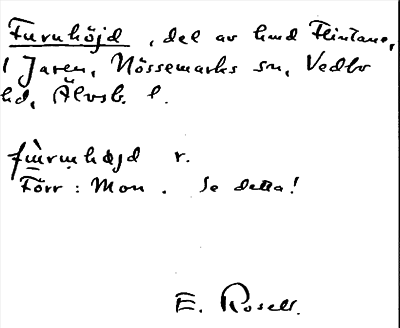 Furuhöjd, del av hmd Flintane,
i Jaren, Nössemarks sn, Vedbo
hd, Älvsb. l.
fɯ̀rɯhøjd r.
Förr: Mon. Se detta!
E. Rosell.